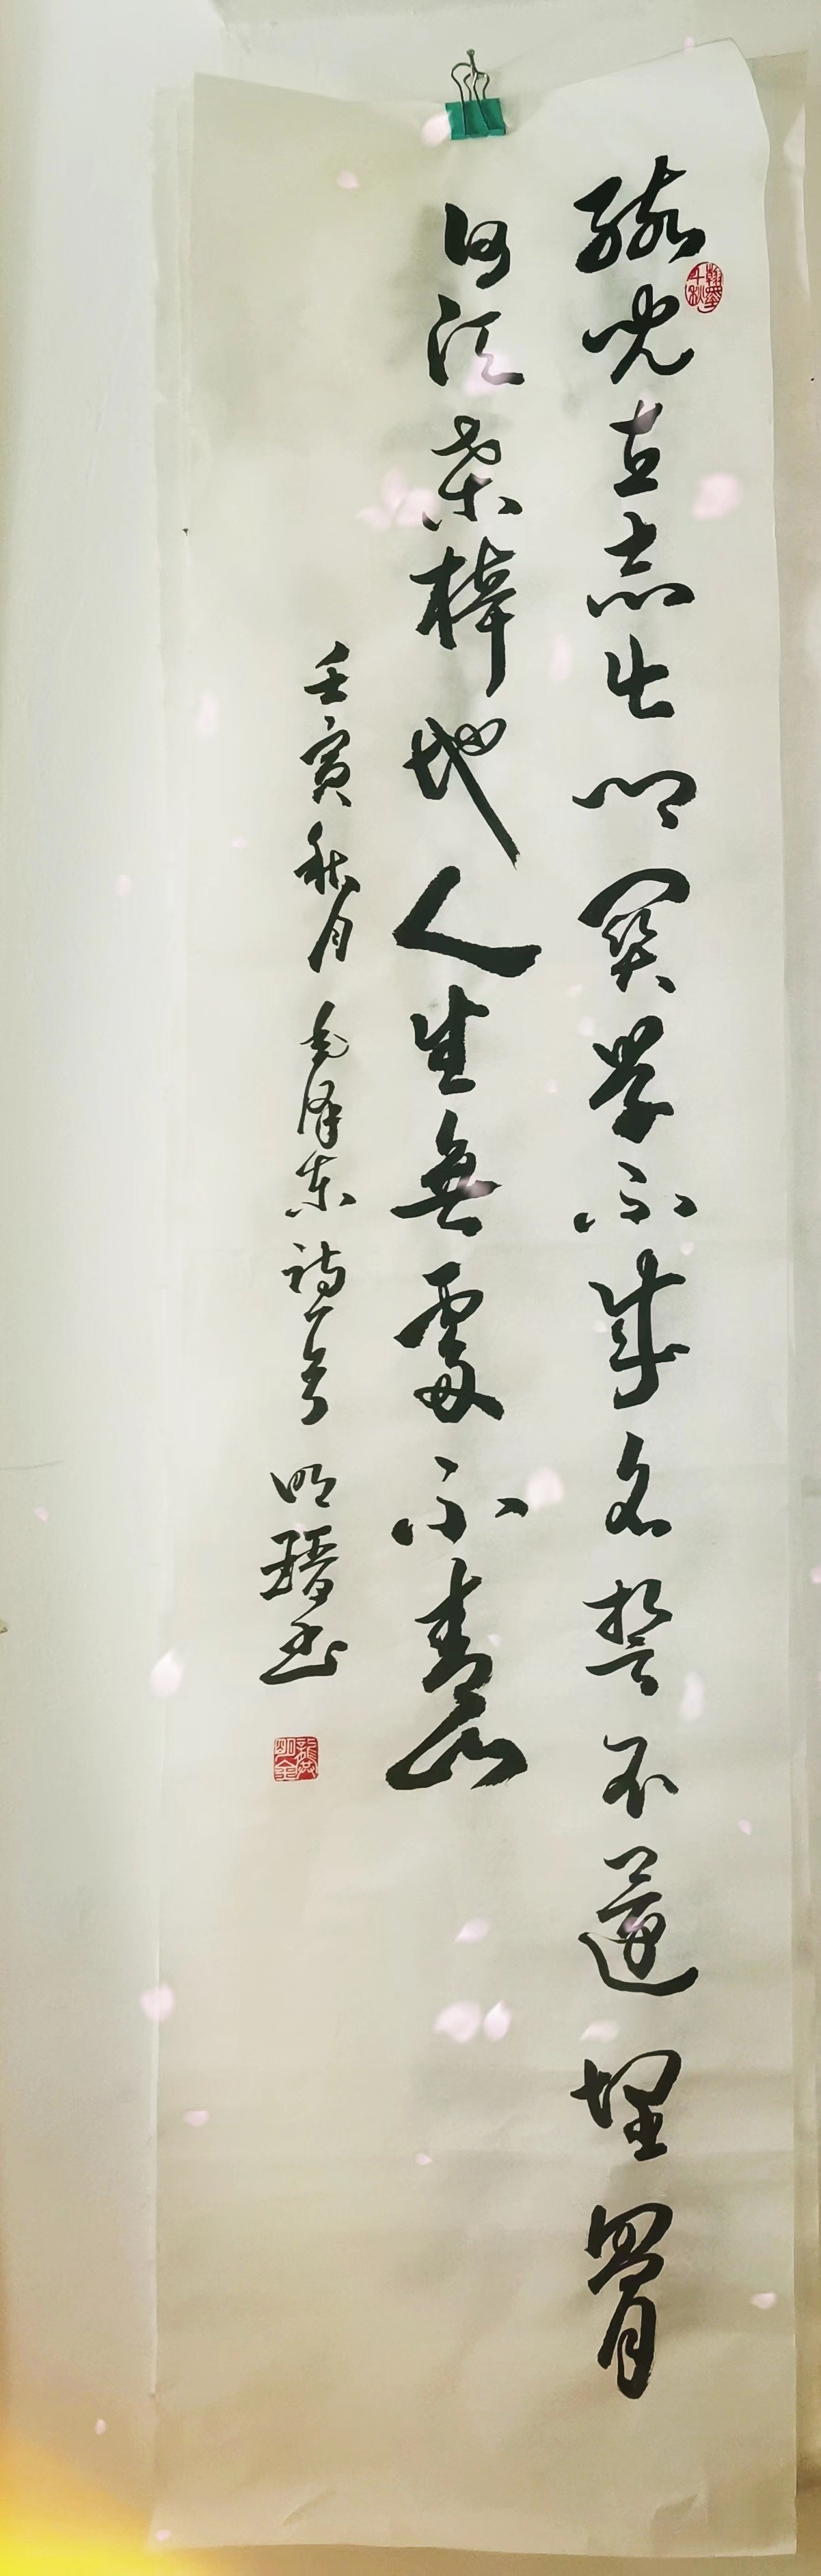 孩儿立志出乡关学不成名誓不还埋骨
何须桑梓地人生無處不青山
壬寅秋月毛泽东詩一首明瑨书
翰墨千秋